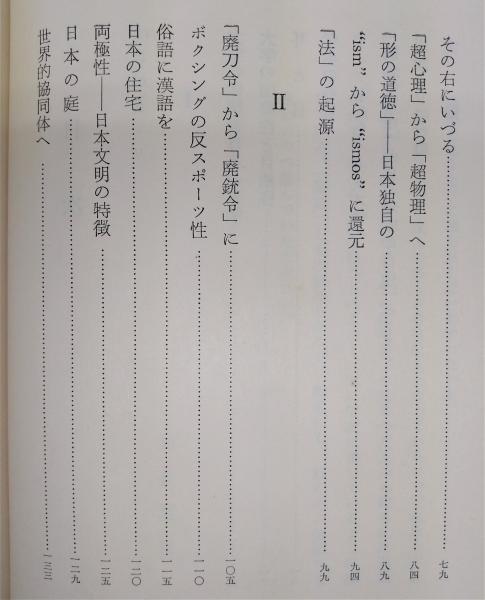 その右にいづる……………七九
「超心理」から「超物理」へ……………八四
「形の道徳」――日本独自の……………八九
“ism” から “ismos” に還元……………九四
「法」の起源……………九九
Ⅱ
「廃刀令」から「廃銃令」に……………一〇五
ボクシングの反スポーツ性……………一一〇
俗語に漢語を……………一一五
日本の住宅……………一二〇
両極性――日本文明の特徴……………一二五
日本の庭……………一二九
世界的協同体へ……………一三三